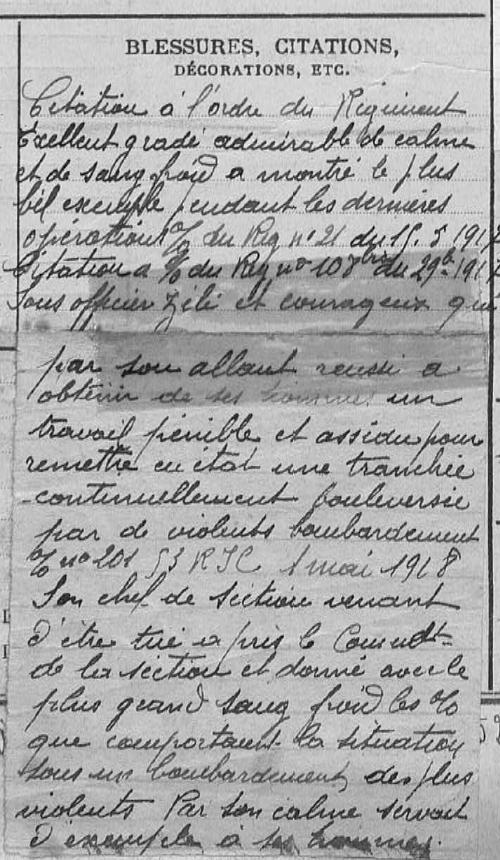 BLESSURES, CITATIONS,
DÉCORATIONS, ETC.
Citation à l'ordre du Régiment
Exellent gradé admirable de calme
et de sang froid a montré le plus
bél exemple pendant les dernières
opérations % du Reg n° 21 du 15. 8 1917
Citation a % du Reg n° 108 du 29 1917
Sous officier zélé et courageux que
par son allant reussi a
obtenir de ses hommes un
travail pénible et assidu pour
remettre en état une tranchée
continuellement bouleversée
par de violents bombardement
% n° 201 53 RIC 1 mai 1918
Son chef de section venant
d'être tué a pris le Commdt
de la section et donné avec le
plus grand sang froid les %
que comportaient la situation
sous un bombardement des plus
violents Par son calme servait
d'exemple à ses hommes.